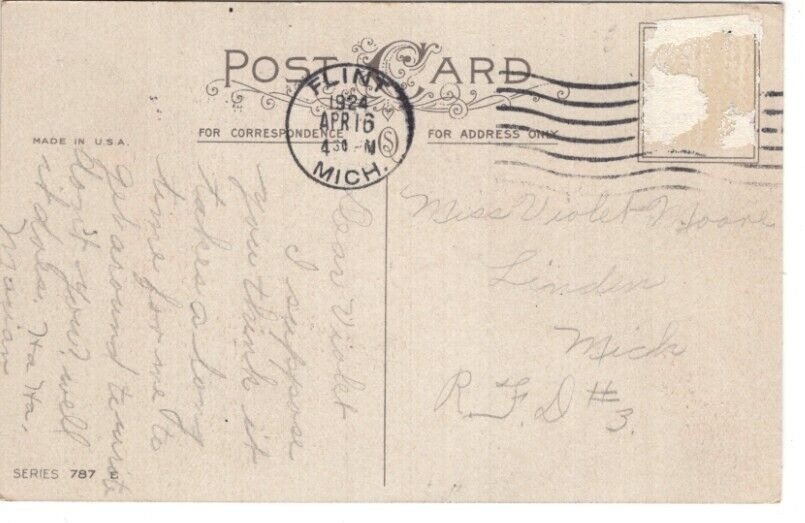 POST CARD
FLINT
1924
APR 16
4 30 - M
MICH.
FOR CORRESPONDENCE
FOR ADDRESS ONLY
MADE IN U.S.A.
Dear Violet
I suppose
you think it
takes a long
time for me to
get around to write
don't you? well
it does. Ha Ha.
Marian
Miss Violet Moore
Linden
Mich
R.F.D #3.
SERIES 787 E